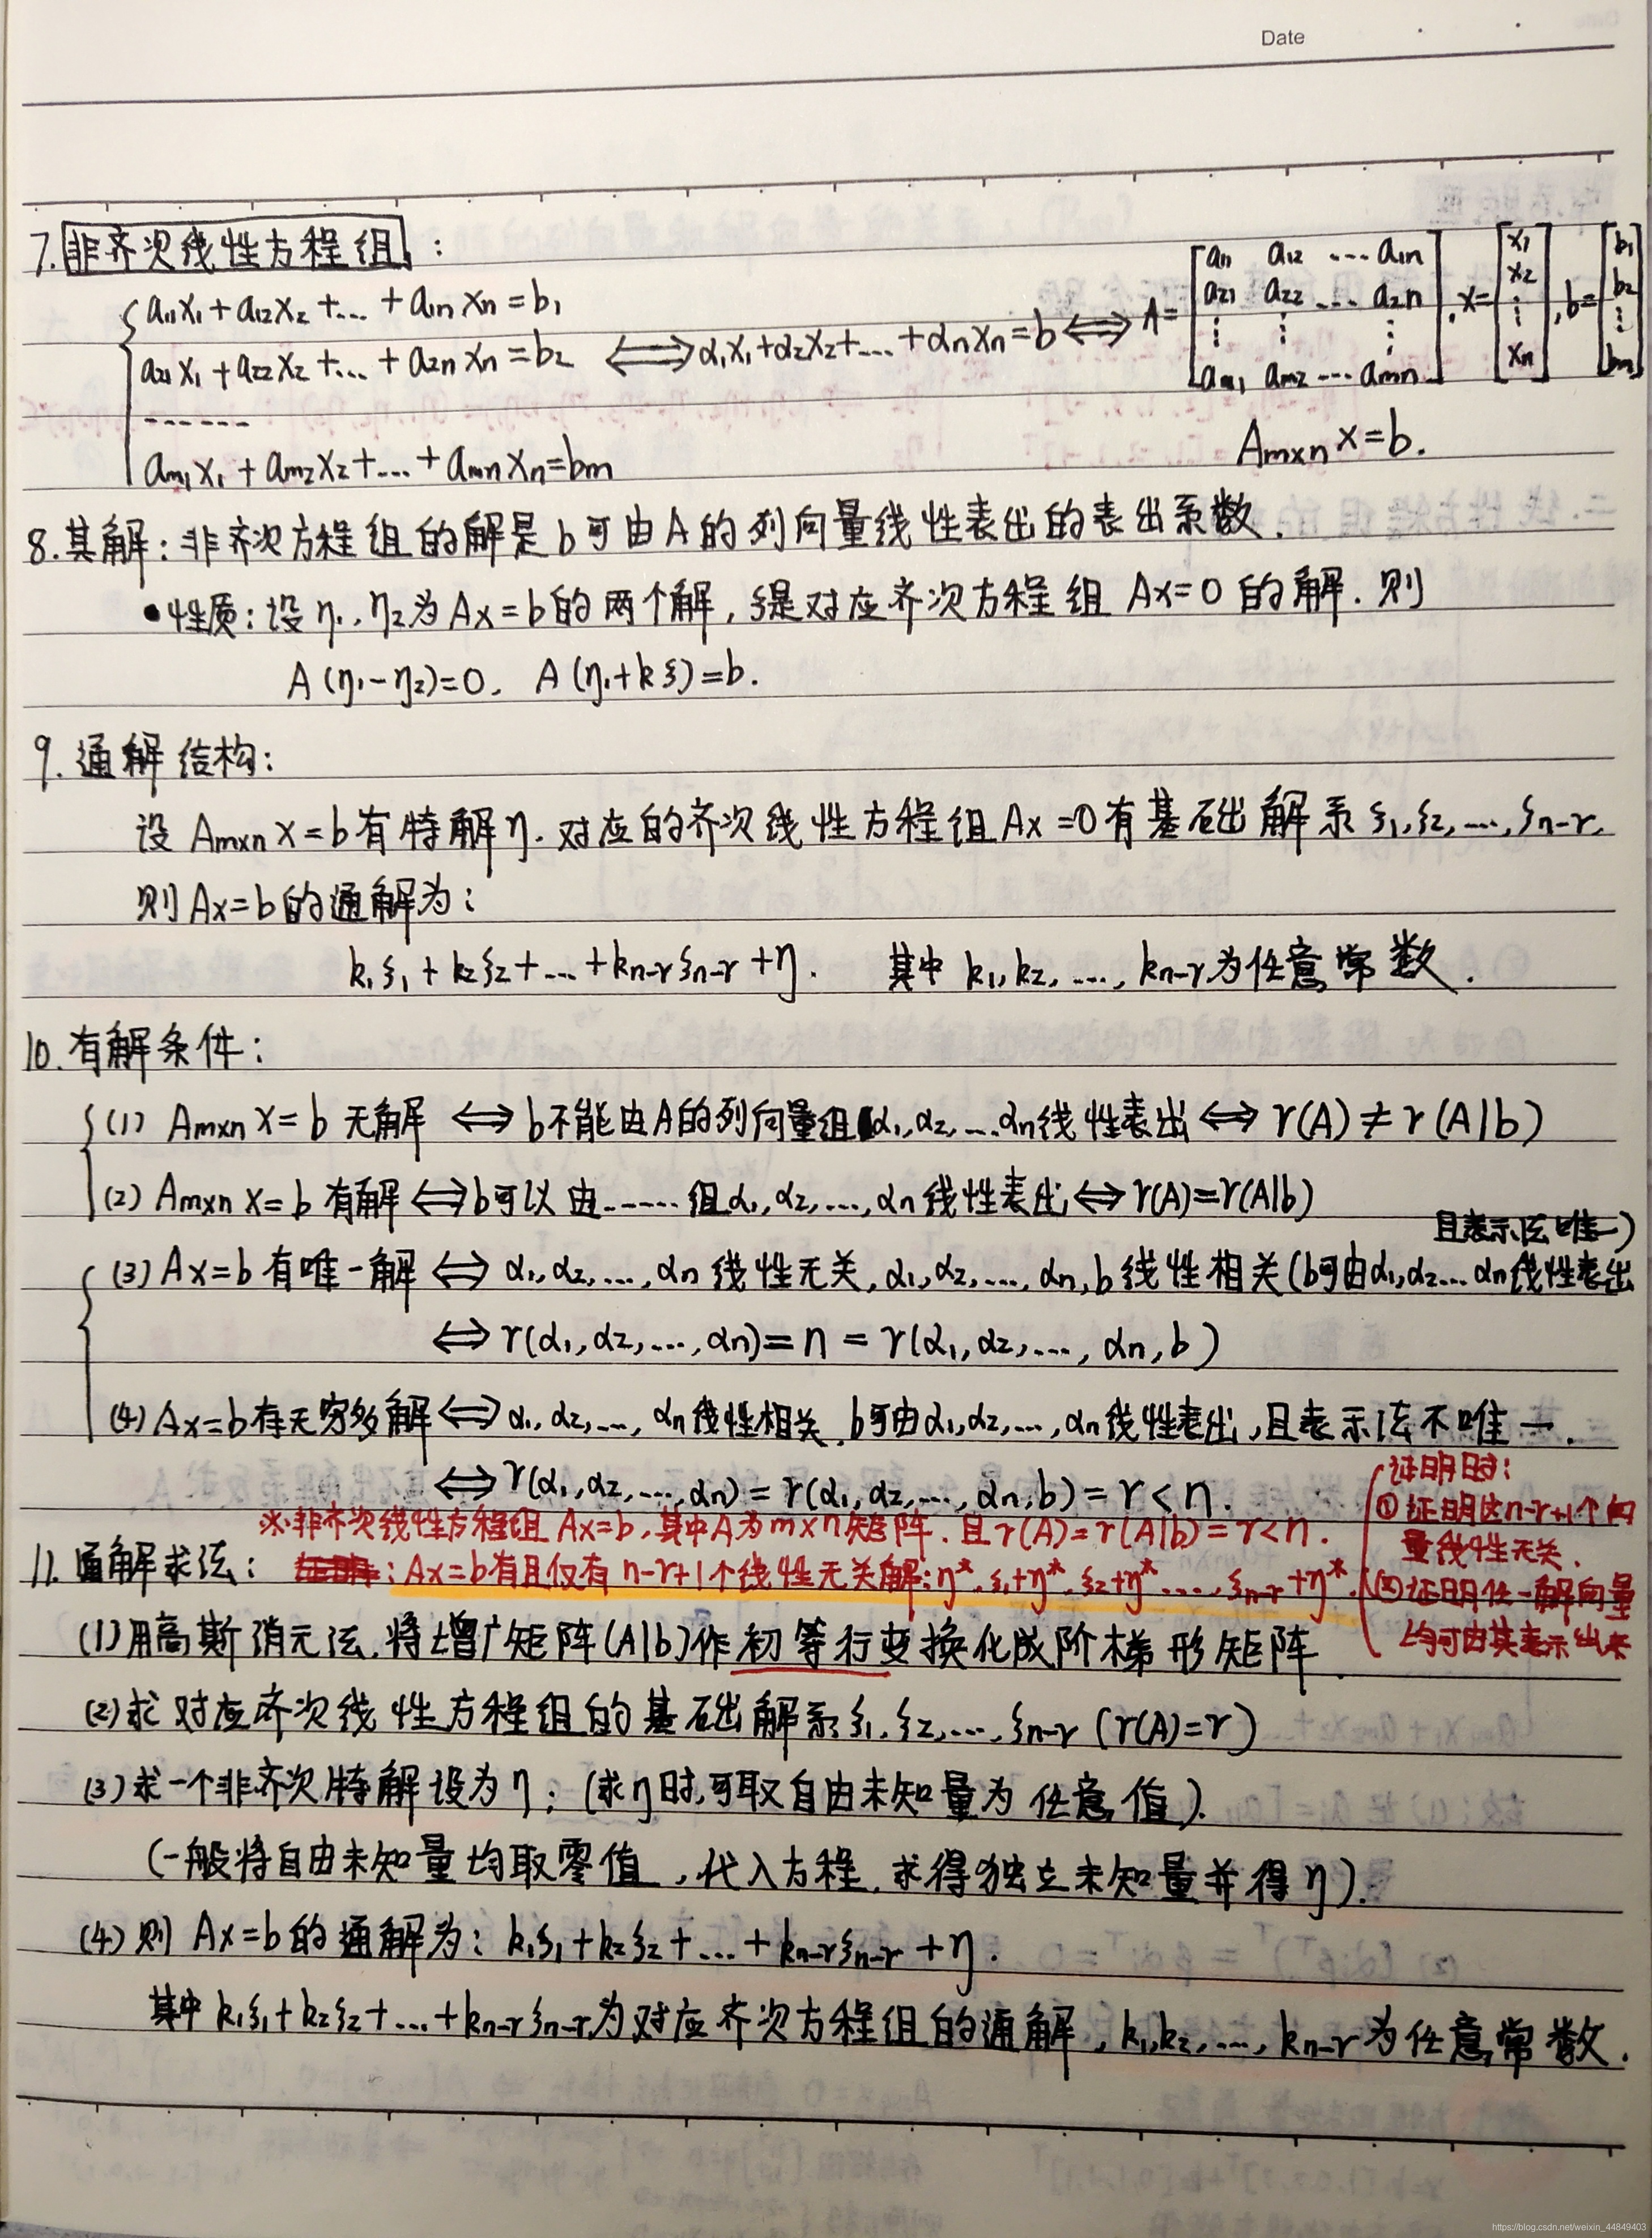 Date
7. 非齐次线性方程组:
a₁₁x₁+a₁₂x₂+...+a₁ₙxₙ=b₁
a₂₁x₁+a₂₂x₂+...+a₂ₙxₙ=b₂ ⟺ α₁x₁+α₂x₂+...+αₙxₙ=b ⟺ A=[a₁₁ a₁₂ ... a₁ₙ
a₂₁ a₂₂ ... a₂ₙ
⋮ ⋮ ⋮
aₘ₁ aₘ₂ ... aₘₙ], x=[x₁ x₂ ⋮ xₙ], b=[b₁ b₂ ⋮ bₘ]
------
aₘ₁x₁+aₘ₂x₂+...+aₘₙxₙ=bₘ
Aₘₓₙx=b.
8. 其解: 非齐次方程组的解是b可由A的列向量线性表出的表出系数.
•性质: 设η₁, η₂为Ax=b的两个解, ξ是对应齐次方程组Ax=0的解. 则
A(η₁-η₂)=0, A(η₁+kξ)=b.
9. 通解结构:
设Aₘₓₙx=b有特解η. 对应的齐次线性方程组Ax=0有基础解系ξ₁,ξ₂,...,ξₙ₋ᵣ,
则Ax=b的通解为:
k₁ξ₁+k₂ξ₂+...+kₙ₋ᵣξₙ₋ᵣ+η. 其中k₁,k₂,...,kₙ₋ᵣ为任意常数.
10. 有解条件:
(1) Aₘₓₙx=b 无解 ⟺ b不能由A的列向量组α₁,α₂,...αₙ线性表出 ⟺ r(A)≠r(A|b)
(2) Aₘₓₙx=b 有解 ⟺ b可以由......组α₁,α₂,...,αₙ线性表出 ⟺ r(A)=r(A|b)
且表示法唯一)
(3) Ax=b有唯一解 ⟺ α₁,α₂,...,αₙ线性无关, α₁,α₂,...,αₙ,b线性相关(b可由α₁,α₂...αₙ线性表出
⟺ r(α₁,α₂,...,αₙ)=n=r(α₁,α₂,...,αₙ,b)
(4) Ax=b有无穷多解 ⟺ α₁,α₂,...,αₙ线性相关, b可由α₁,α₂,...,αₙ线性表出, 且表示法不唯一.
⟺ r(α₁,α₂,...,αₙ)=r(α₁,α₂,...,αₙ,b)=r<n.
※非齐次线性方程组Ax=b, 其中A为m×n矩阵. 且r(A)=r(A|b)=r<n.
: Ax=b有且仅有n-r+1个线性无关解: η*, ξ₁+η*, ξ₂+η*, ..., ξₙ₋ᵣ+η*.
证明时:
①证明这n-r+1个向
量线性无关.
②证明任一解向量
均可由其表示出来
11. 通解求法:
(1)用高斯消元法, 将增广矩阵(A|b)作初等行变换化成阶梯形矩阵.
(2)求对应齐次线性方程组的基础解系ξ₁,ξ₂,...,ξₙ₋ᵣ (r(A)=r)
(3)求一个非齐次特解设为η; (求η时,可取自由未知量为任意值).
(一般将自由未知量均取零值, 代入方程, 求得独立未知量并得η).
(4)则Ax=b的通解为: k₁ξ₁+k₂ξ₂+...+kₙ₋ᵣξₙ₋ᵣ+η.
其中k₁ξ₁+k₂ξ₂+...+kₙ₋ᵣξₙ₋ᵣ为对应齐次方程组的通解, k₁,k₂,...,kₙ₋ᵣ为任意常数.
https://blog.csdn.net/weixin_44849403